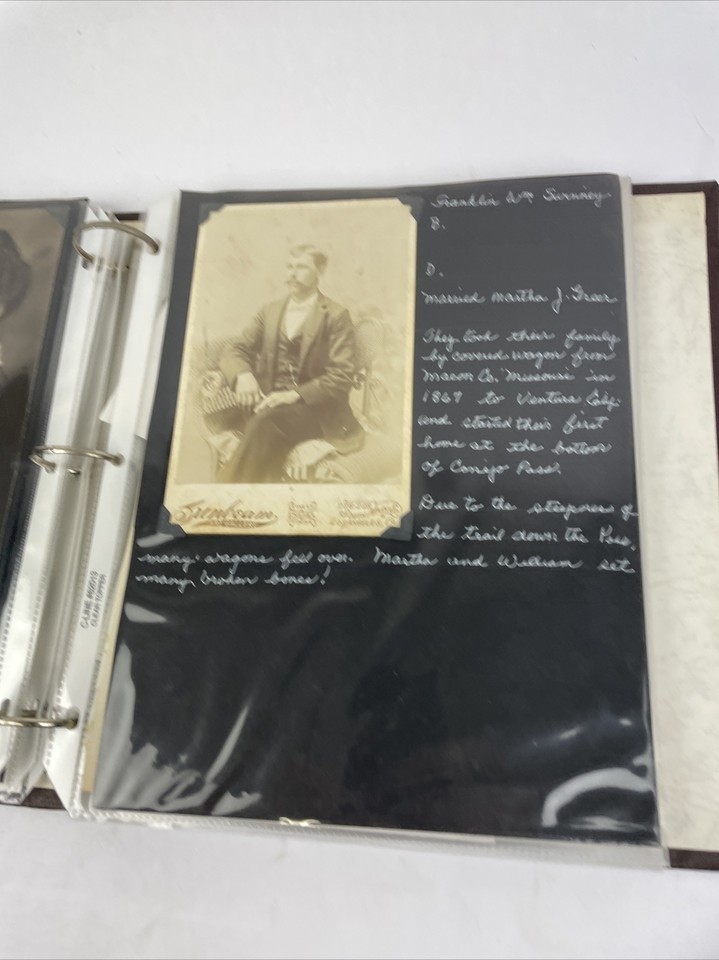 Franklin Wm Swinney
B.
D.
Married Martha J. Greer
They took their family
by covered wagon from
Macon Co. Missouri in
1869 to Ventura Cnty.
and started their first
home at the bottom
of Conejo Pass.
Due to the steepness of
the trail down the Pass,
many wagons fell over. Martha and William set
many broken bones!
Sunbeam
C-LINE #62013
CLEAR TOPPER